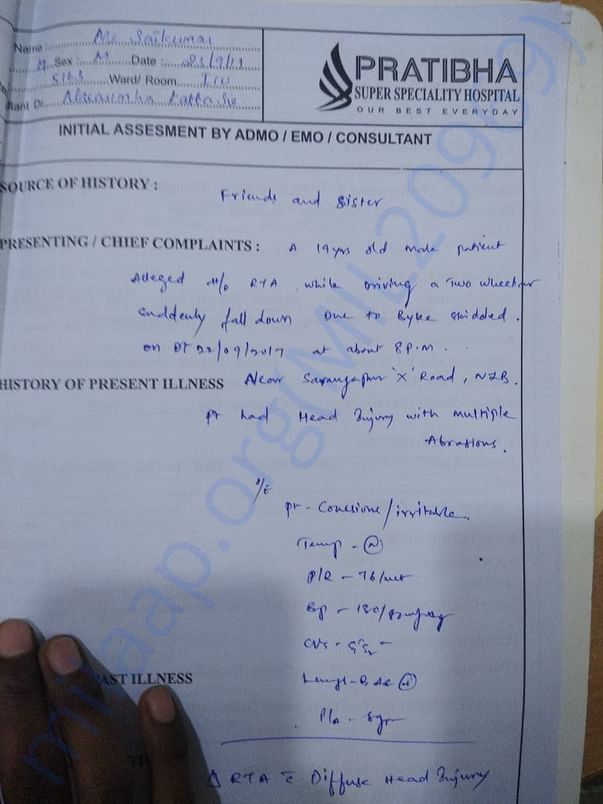 Name: Mr. Saikumar
Sex: M Date: 23/9/17
Ward/ Room ICU
tant Dr.
PRATIBHA
SUPER SPECIALITY HOSPITAL
OUR BEST EVERYDAY
INITIAL ASSESMENT BY ADMO / EMO / CONSULTANT
SOURCE OF HISTORY :
Friends and sister
PRESENTING / CHIEF COMPLAINTS : A 19yrs old male patient
Alleged H/o RTA while Driving a Two wheeler
suddenly fall down Due to Byke skidded.
on DT 22/09/2017 at about 8P.M.
HISTORY OF PRESENT ILLNESS Near Sarangapur 'X' Road, NZB.
pt had Head Injury with multiple
Abrasions.
O/E
pt - Conscious/irritable
Temp - (N)
P/R - 76/mt
Bp - 130/
CVS - S1S2
PAST ILLNESS
P/A -
Δ RTA c̄ Diffuse Head Injury
milaap.org(MIL20969)